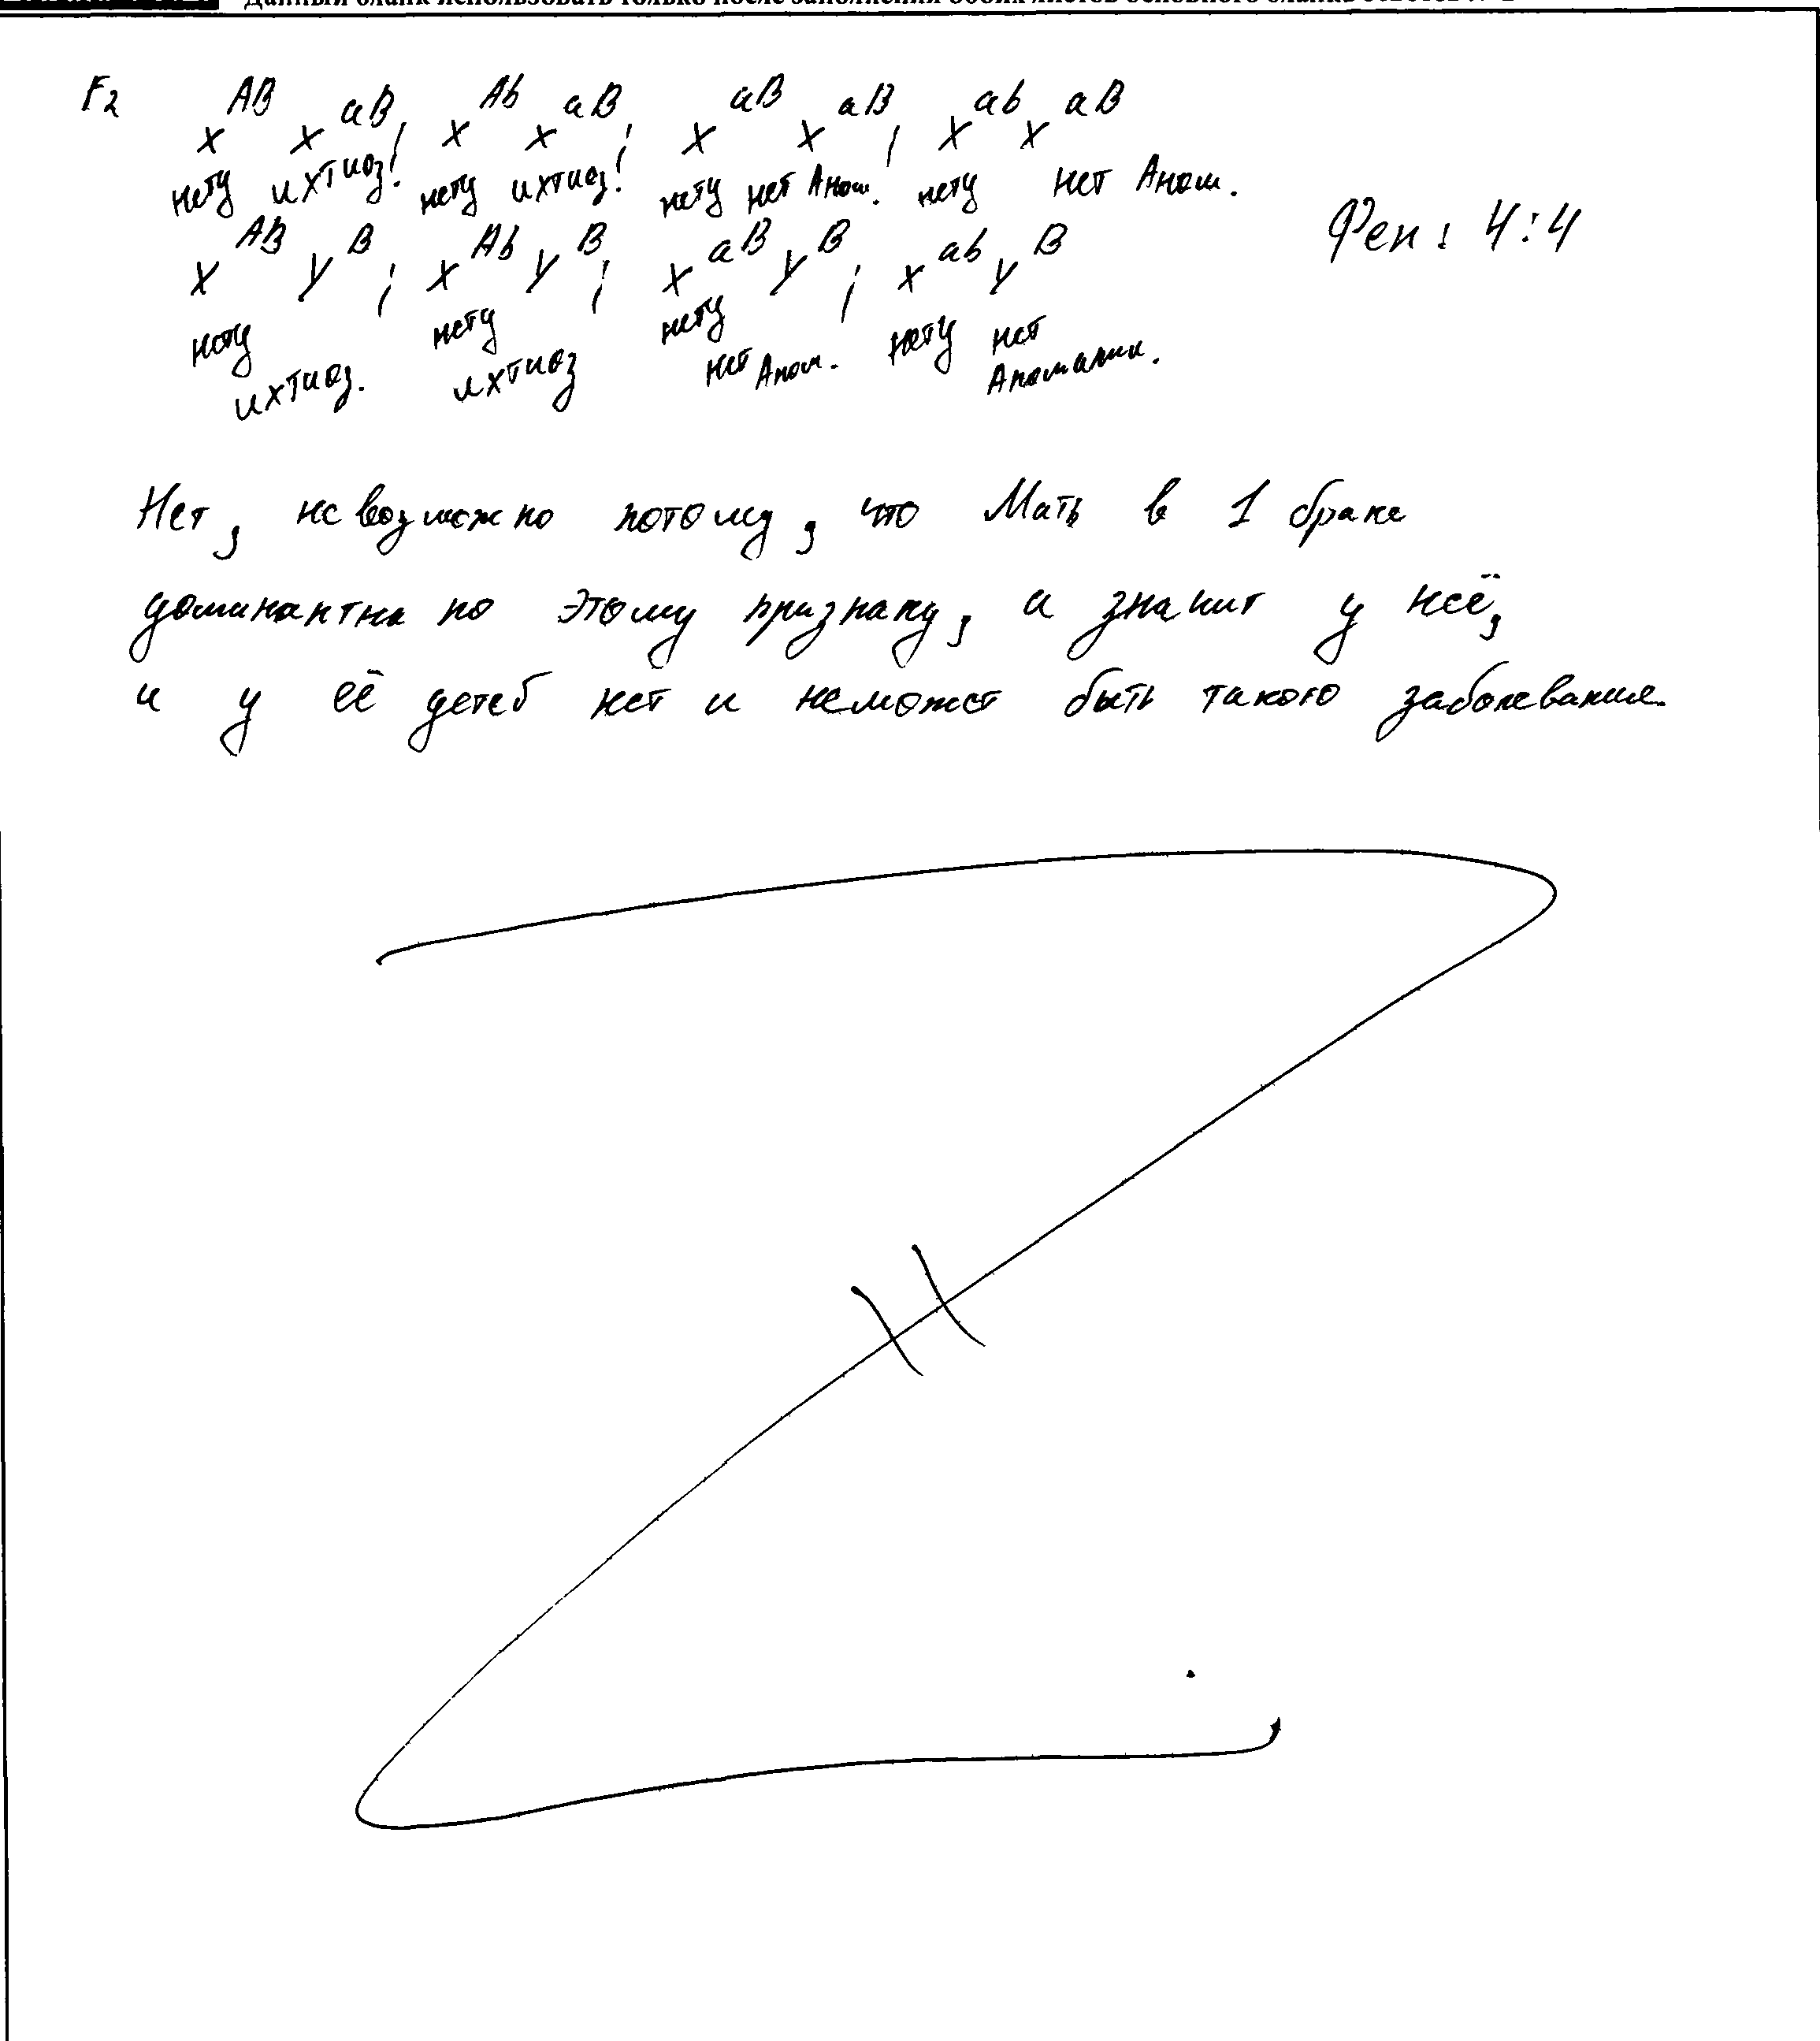 Данный бланк использовать только после заполнения обоих листов основного бланка ответов № 2
F2 X^AB X^aB; X^Ab X^aB; X^aB X^aB; X^ab X^aB
нету ихтиоз! нету ихтиоз! нету нет Аном. нету нет Аном.
X^AB Y^B; X^Ab Y^B; X^aB Y^B; X^ab Y^B Фен: 4:4
нету нету нету нету нет
ихтиоз. ихтиоз нет Аном. Аномалии.
Нет, не возможно потому, что Мать в 1 браке
доминантна по этому признаку, а значит у неё,
и у её детей нет и неможет быть такого заболевания.